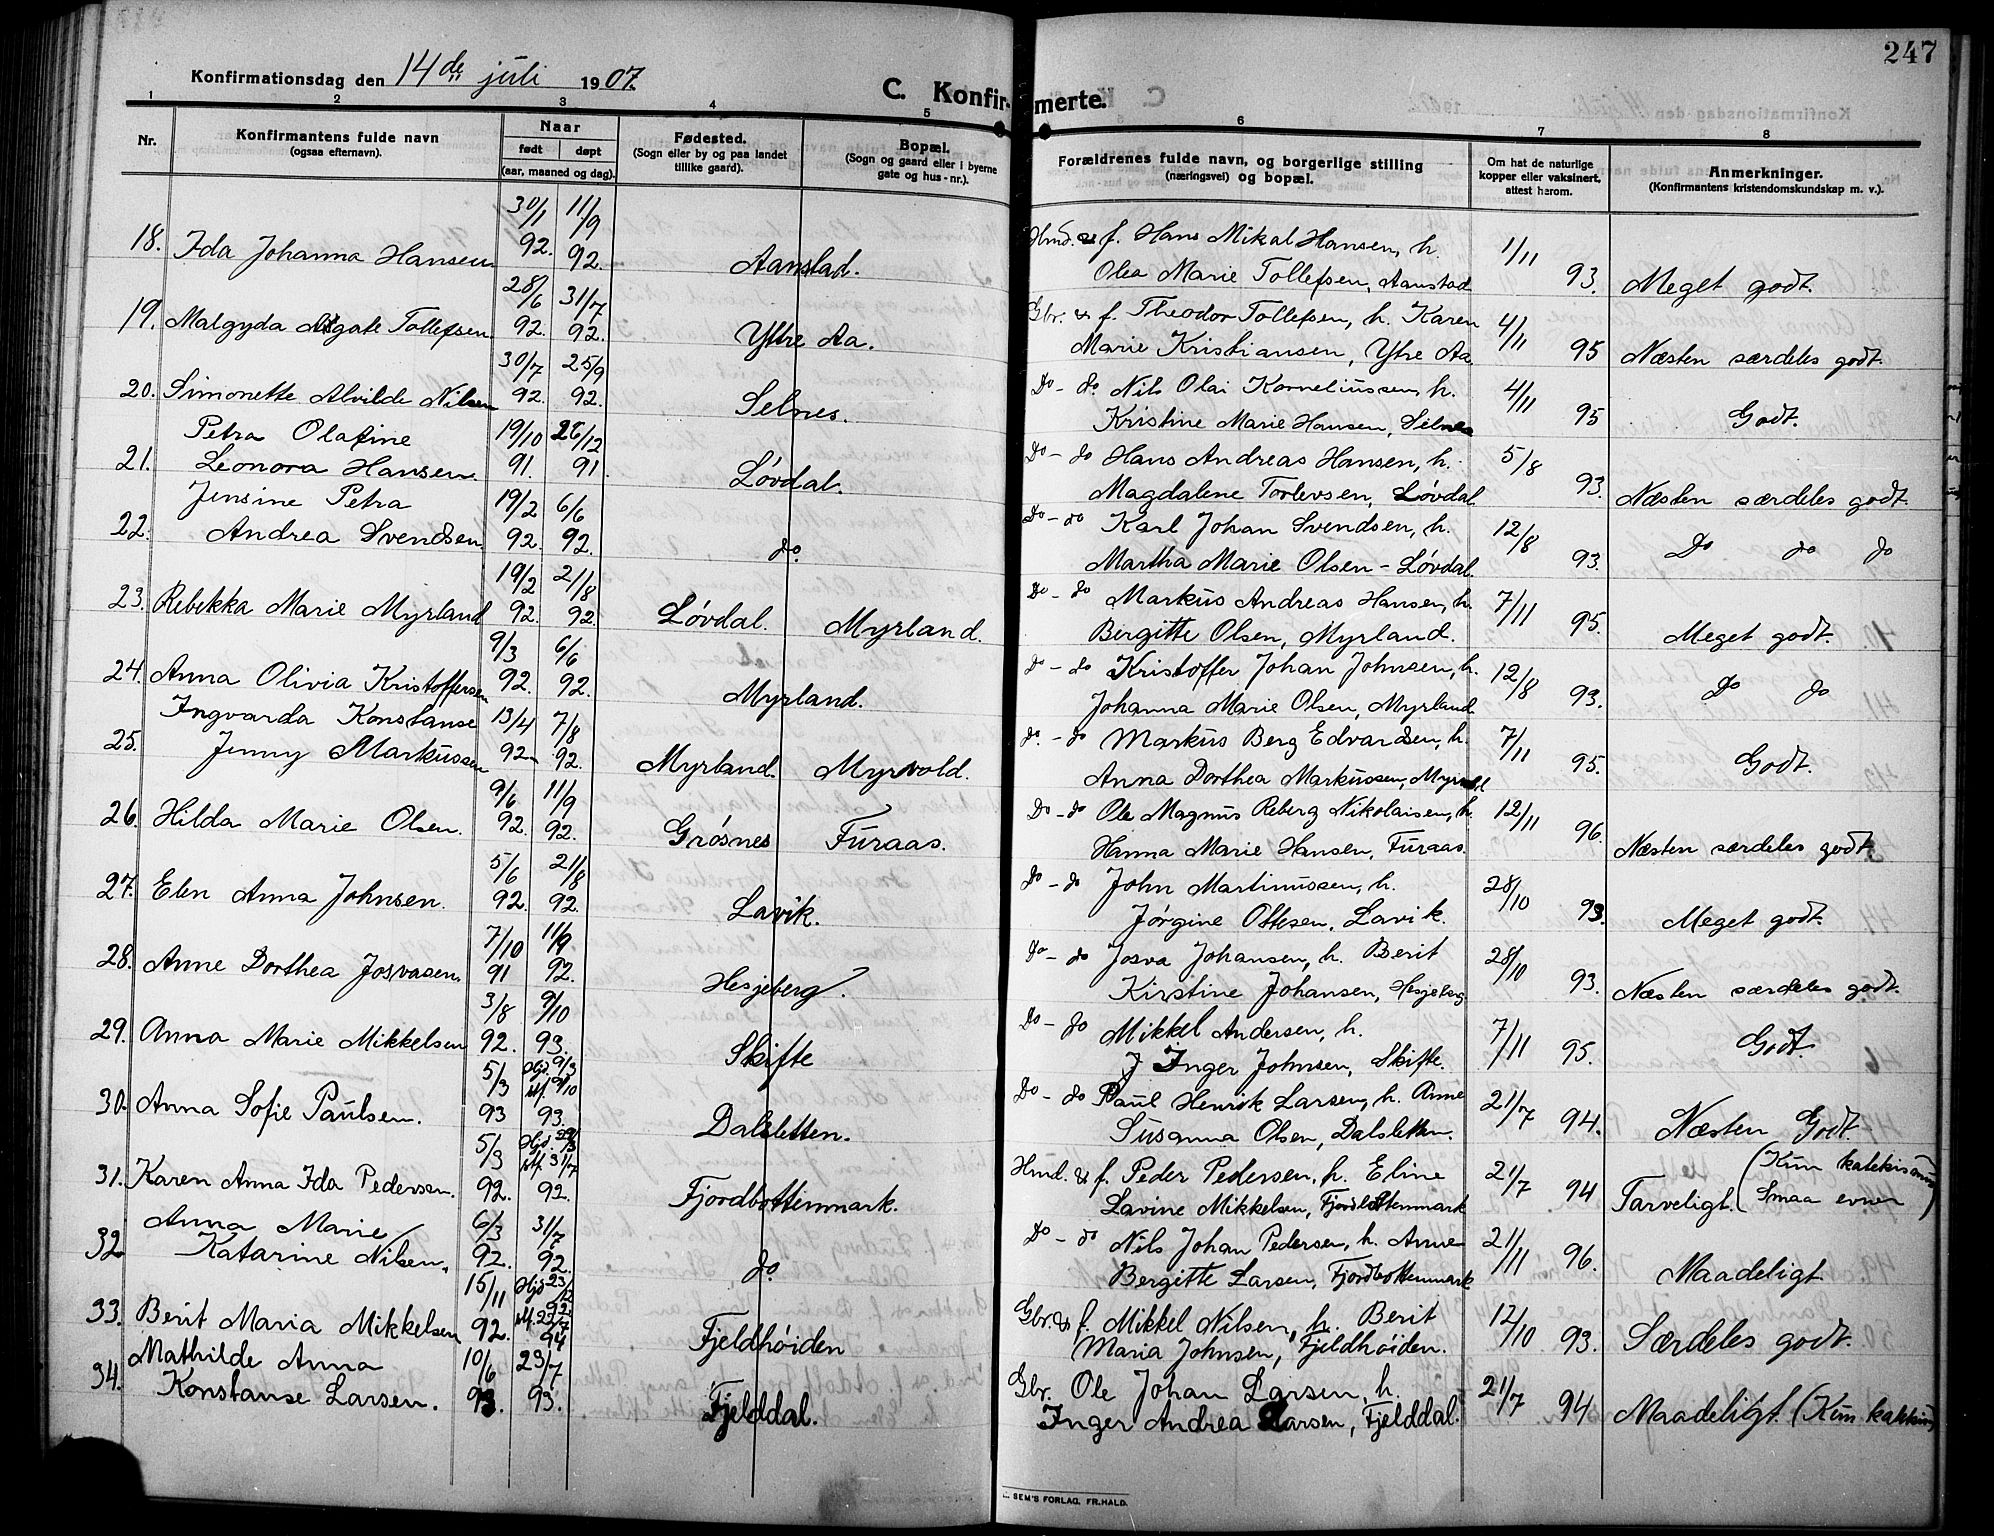 247
Konfirmationsdag den 14de juli 1907.
C. Konfirmerte.
1 2 3 4 5 6 7 8
Nr.
Konfirmantens fulde navn
(ogsaa efternavn).
Naar
født døpt
(aar, maaned og dag).
Fødested.
(Sogn eller by og paa landet
tillike gaard).
Bopæl.
(Sogn og gaard eller i byerne
gate og hus-nr.).
Forældrenes fulde navn, og borgerlige stilling
(næringsvei) og bopæl.
Om hat de naturlige
kopper eller vaksinert,
attest herom.
Anmerkninger.
(Konfirmantens kristendomskundskap m. v.).
18. Ida Johanna Hansen 30/1 92. 11/9 92. Aanstad. Hmd. & f. Hans Mikal Hansen, h.
Olea Marie Tollefsen, Aanstad 1/11 93. Meget godt.
19. Malgyda Agate Tollefsen. 28/6 92. 31/7 92. Ytre Aa. Gbr. & f. Theodor Tollefsen, h. Karen
Marie Kristiansen, Ytre Aa 4/11 95 Næsten særdeles godt.
20. Simonette Alvilde Nilsen 30/7 92. 25/9 92. Selnes. Do - do. Nils Olai Korneliussen, h.
Kristine Marie Hansen, Selnes 4/11 95 Godt.
21. Petra Olafine
Leonora Hansen. 19/10 91. 26/12 91. Løvdal. Do - do Hans Andreas Hansen, h.
Magdalene Torlevsen, Løvdal 5/8 93. Næsten særdeles godt.
22. Jensine Petra
Andrea Svendsen. 19/2 92. 6/6 92. do. Do - do Karl Johan Svendsen, h.
Martha Marie Olsen - Løvdal. 12/8 93. Do do do
23. Rebekka Marie Myrland 19/2 92. 21/8 92. Løvdal. Myrland. Do - do Markus Andreas Hansen, h.
Bergitte Olsen, Myrland. 7/11 95. Meget godt.
24. Anna Olivia Kristoffersen 9/3 92. 6/6 92. Myrland. do - do Kristoffer Johan Johnsen, h.
Johanna Marie Olsen, Myrland. 12/8 93. Do do
25. Ingvarda Konstanse
Jenny Markussen 13/4 92 7/8 92. Myrland. Myrvold. do. - do Markus Berg Edvardsen, h.
Anna Dorthea Markussen, Myrvold 7/11 95. Godt.
26. Hilda Marie Olsen. 9/6 92. 11/9 92. Grøsnes Furaas. Do - do Ole Magnus Reberg Nikolaisen, h.
Hanna Marie Hansen, Furaas. 12/11 96. Næsten særdeles godt
27. Elen Anna Johnsen. 5/6 92. 21/8 92. Lavik. Do - do John Martinussen, h.
Jørgine Ottesen, Lavik. 28/10 93. Meget godt.
28. Anne Dorthea Josvasen. 7/10 91 11/9 92. Hesjeberg. do - do Josva Johansen, h. Berit
Kirstine Johansen, Hesjeberg 28/10 93. Næsten særdeles godt.
29. Anna Marie Mikkelsen 3/8 92. 9/10 93. Skifte Do - do Mikkel Andersen, h.
Inger Johnsen, Skifte. 7/11 95. Godt.
30. Anna Sofie Paulsen. 5/3 93 Hjd. 9/3 stf. 9/10 93. Dalsletten. Do - do Paul Henrik Larsen, h. Anne
Susanna Olsen, Dalsletten. 21/7 94. Næsten Godt.
31. Karen Anna Ida Pedersen. 5/3 92. stf. 31/7 92. Fjordbottenmark. Hmd. & f. Peder Pedersen, h. Eline
Lavine Mikkelsen, Fjordbottenmark 21/7 94 Tarveligt. (Kun katekismus
Smaa evner)
32 Anna Marie
Katarine Nilsen. 6/3 92. 31/7 92. do. Do - do Nils Johan Pedersen, h. Anne
Bergitte Larsen, Fjordbottenmark 21/11 96. Maadeligt
33. Berit Maria Mikkelsen 15/11 92. Hjd 23/12 92 stf. 22/7 94 Fjeldhøiden Gbr. & f. Mikkel Nilsen, h. Berit
Maria Johnsen, Fjeldhøiden. 12/10 93. Særdeles godt.
34. Mathilde Anna
Konstanse Larsen. 10/6 93. 23/7 93. Fjelddal. Gbr. Ole Johan Larsen, h.
Inger Andrea Larsen, Fjelddal. 21/7 94 Maadeligt. (Kun
SEM'S FORLAG, FR.HALD.